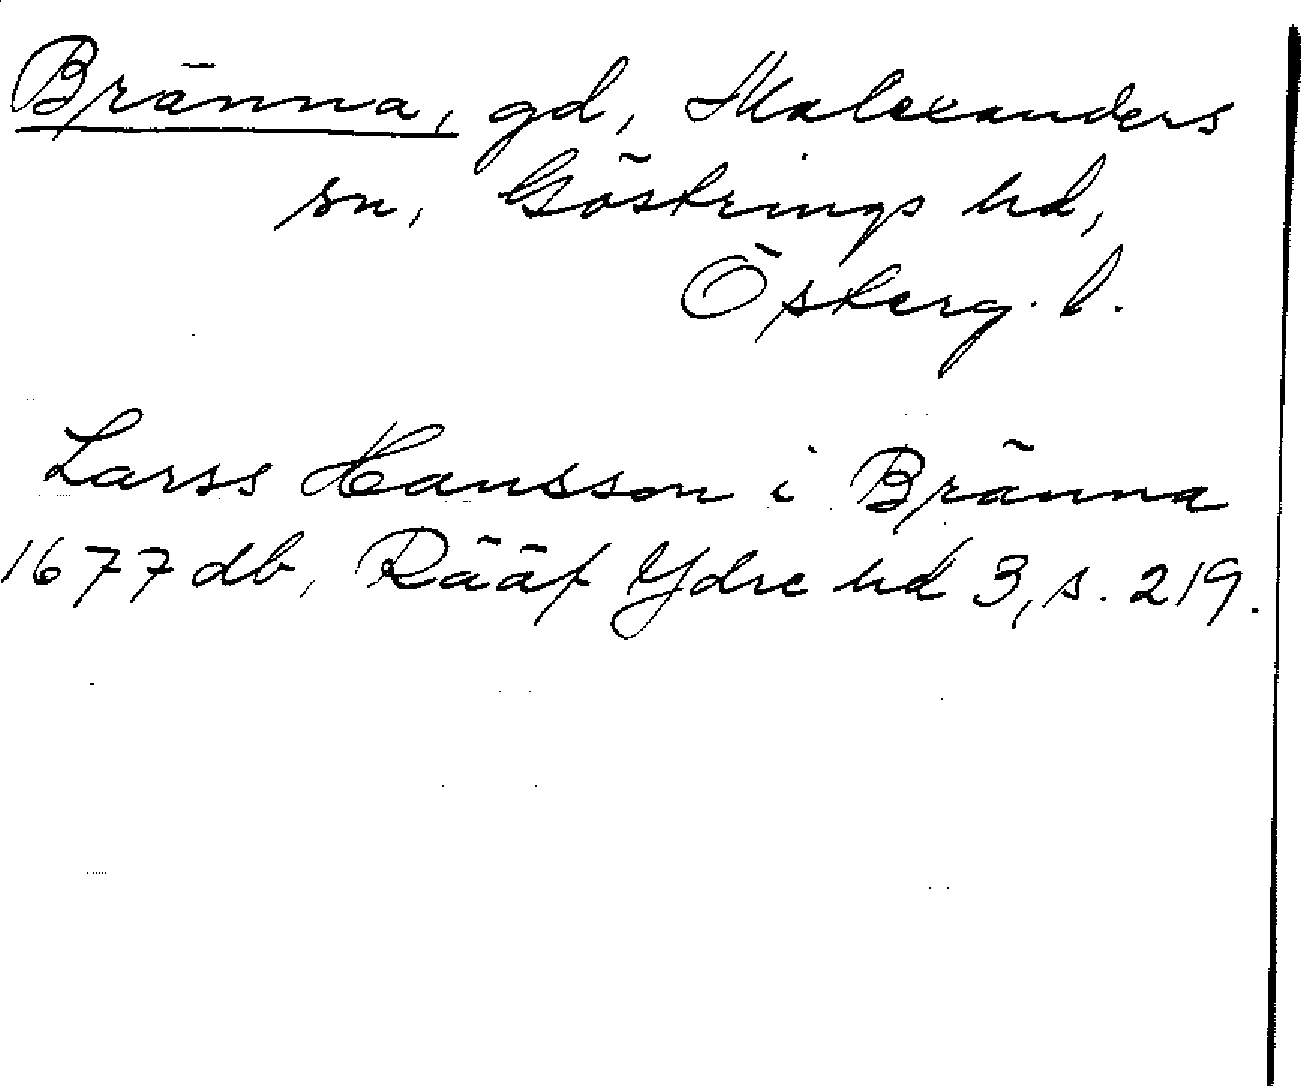 Bränna, gd, Malexanders
sn, Göstrings hd,
Österg. l.
Larss Hansson i Bränna
1677 db, Rääf Ydre hd 3, s. 219.